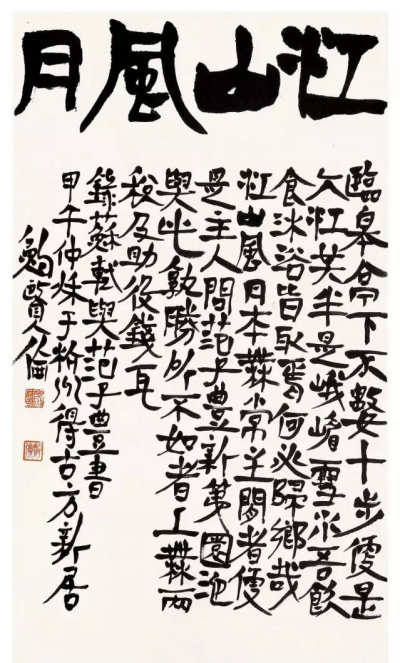 江山風月
臨皋亭下不數十步便是
大江其半是峨嵋雪水吾飲
食沐浴皆取焉何必歸鄉哉
江山風月本無常主閒者便
是主人問范子豐新第園池
與此孰勝所不如者上無兩
稅及助役錢耳
錄蘇軾與范子豐書
甲午仲秋于得古方新居
鮑賢倫